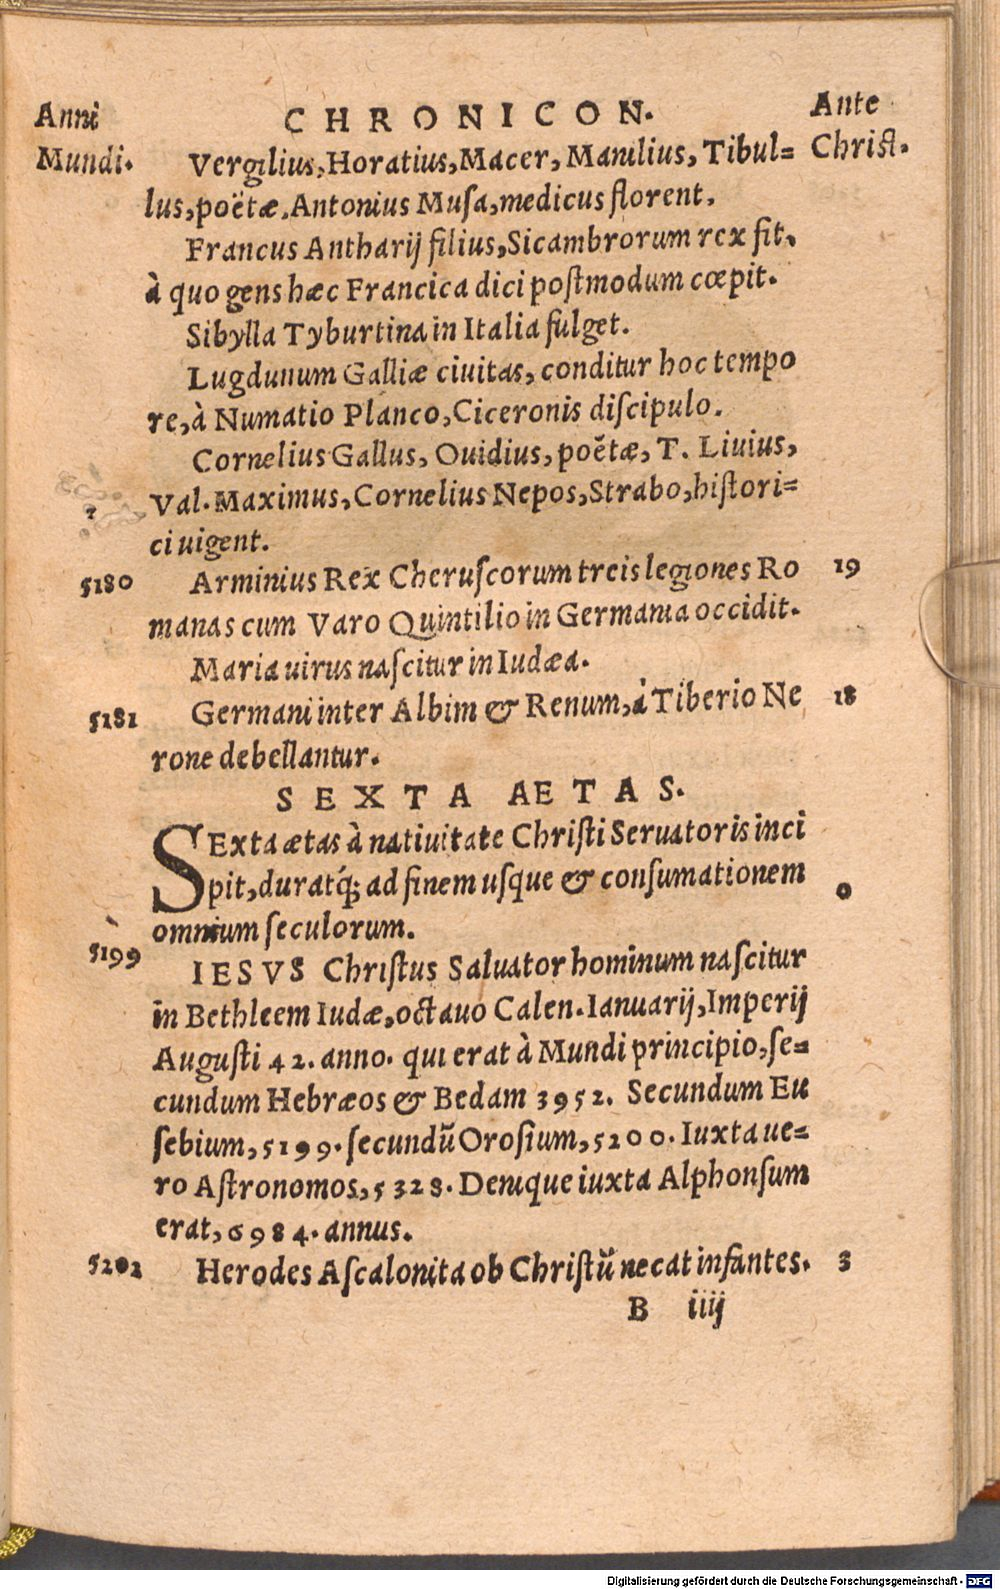 Anni CHRONICON. Ante
Mundi. Vergilius, Horatius, Macer, Manilius, Tibul= Christ.
lus, poëtæ, Antonius Musa, medicus florent.
Francus Antharij filius, Sicambrorum rex fit,
à quo gens hæc Francica dici postmodum cœpit.
Sibylla Tyburtina in Italia fulget.
Lugdunum Galliæ ciuitas, conditur hoc tempo
re, à Numatio Planco, Ciceronis discipulo.
Cornelius Gallus, Ouidius, poëtæ, T. Liuius,
Val. Maximus, Cornelius Nepos, Strabo, histori=
ci uigent.
5180 Arminius Rex Cheruscorum treis legiones Ro 19
manas cum Varo Quintilio in Germania occidit.
Maria uirus nascitur in Iudæa.
5181 Germani inter Albim & Renum, à Tiberio Ne 18
rone debellantur.
SEXTA AETAS.
SExta ætas à natiuitate Christi Seruatoris inci
pit, duratq́; ad finem usque & consumationem 0
omnium seculorum.
5199 IESVS Christus Saluator hominum nascitur
in Bethleem Iudæ, octauo Calen. Ianuarij, Imperij
Augusti 42. anno. qui erat à Mundi principio, se=
cundum Hebræos & Bedam 3952. Secundum Eu
sebium, 5199. secundũ Orosium, 5200. Iuxta ue=
ro Astronomos, 5328. Denique iuxta Alphonsum
erat, 6984. annus.
5202 Herodes Ascalonita ob Christũ necat infantes. 3
B iiij
Digitalisierung gefördert durch die Deutsche Forschungsgemeinschaft - DFG